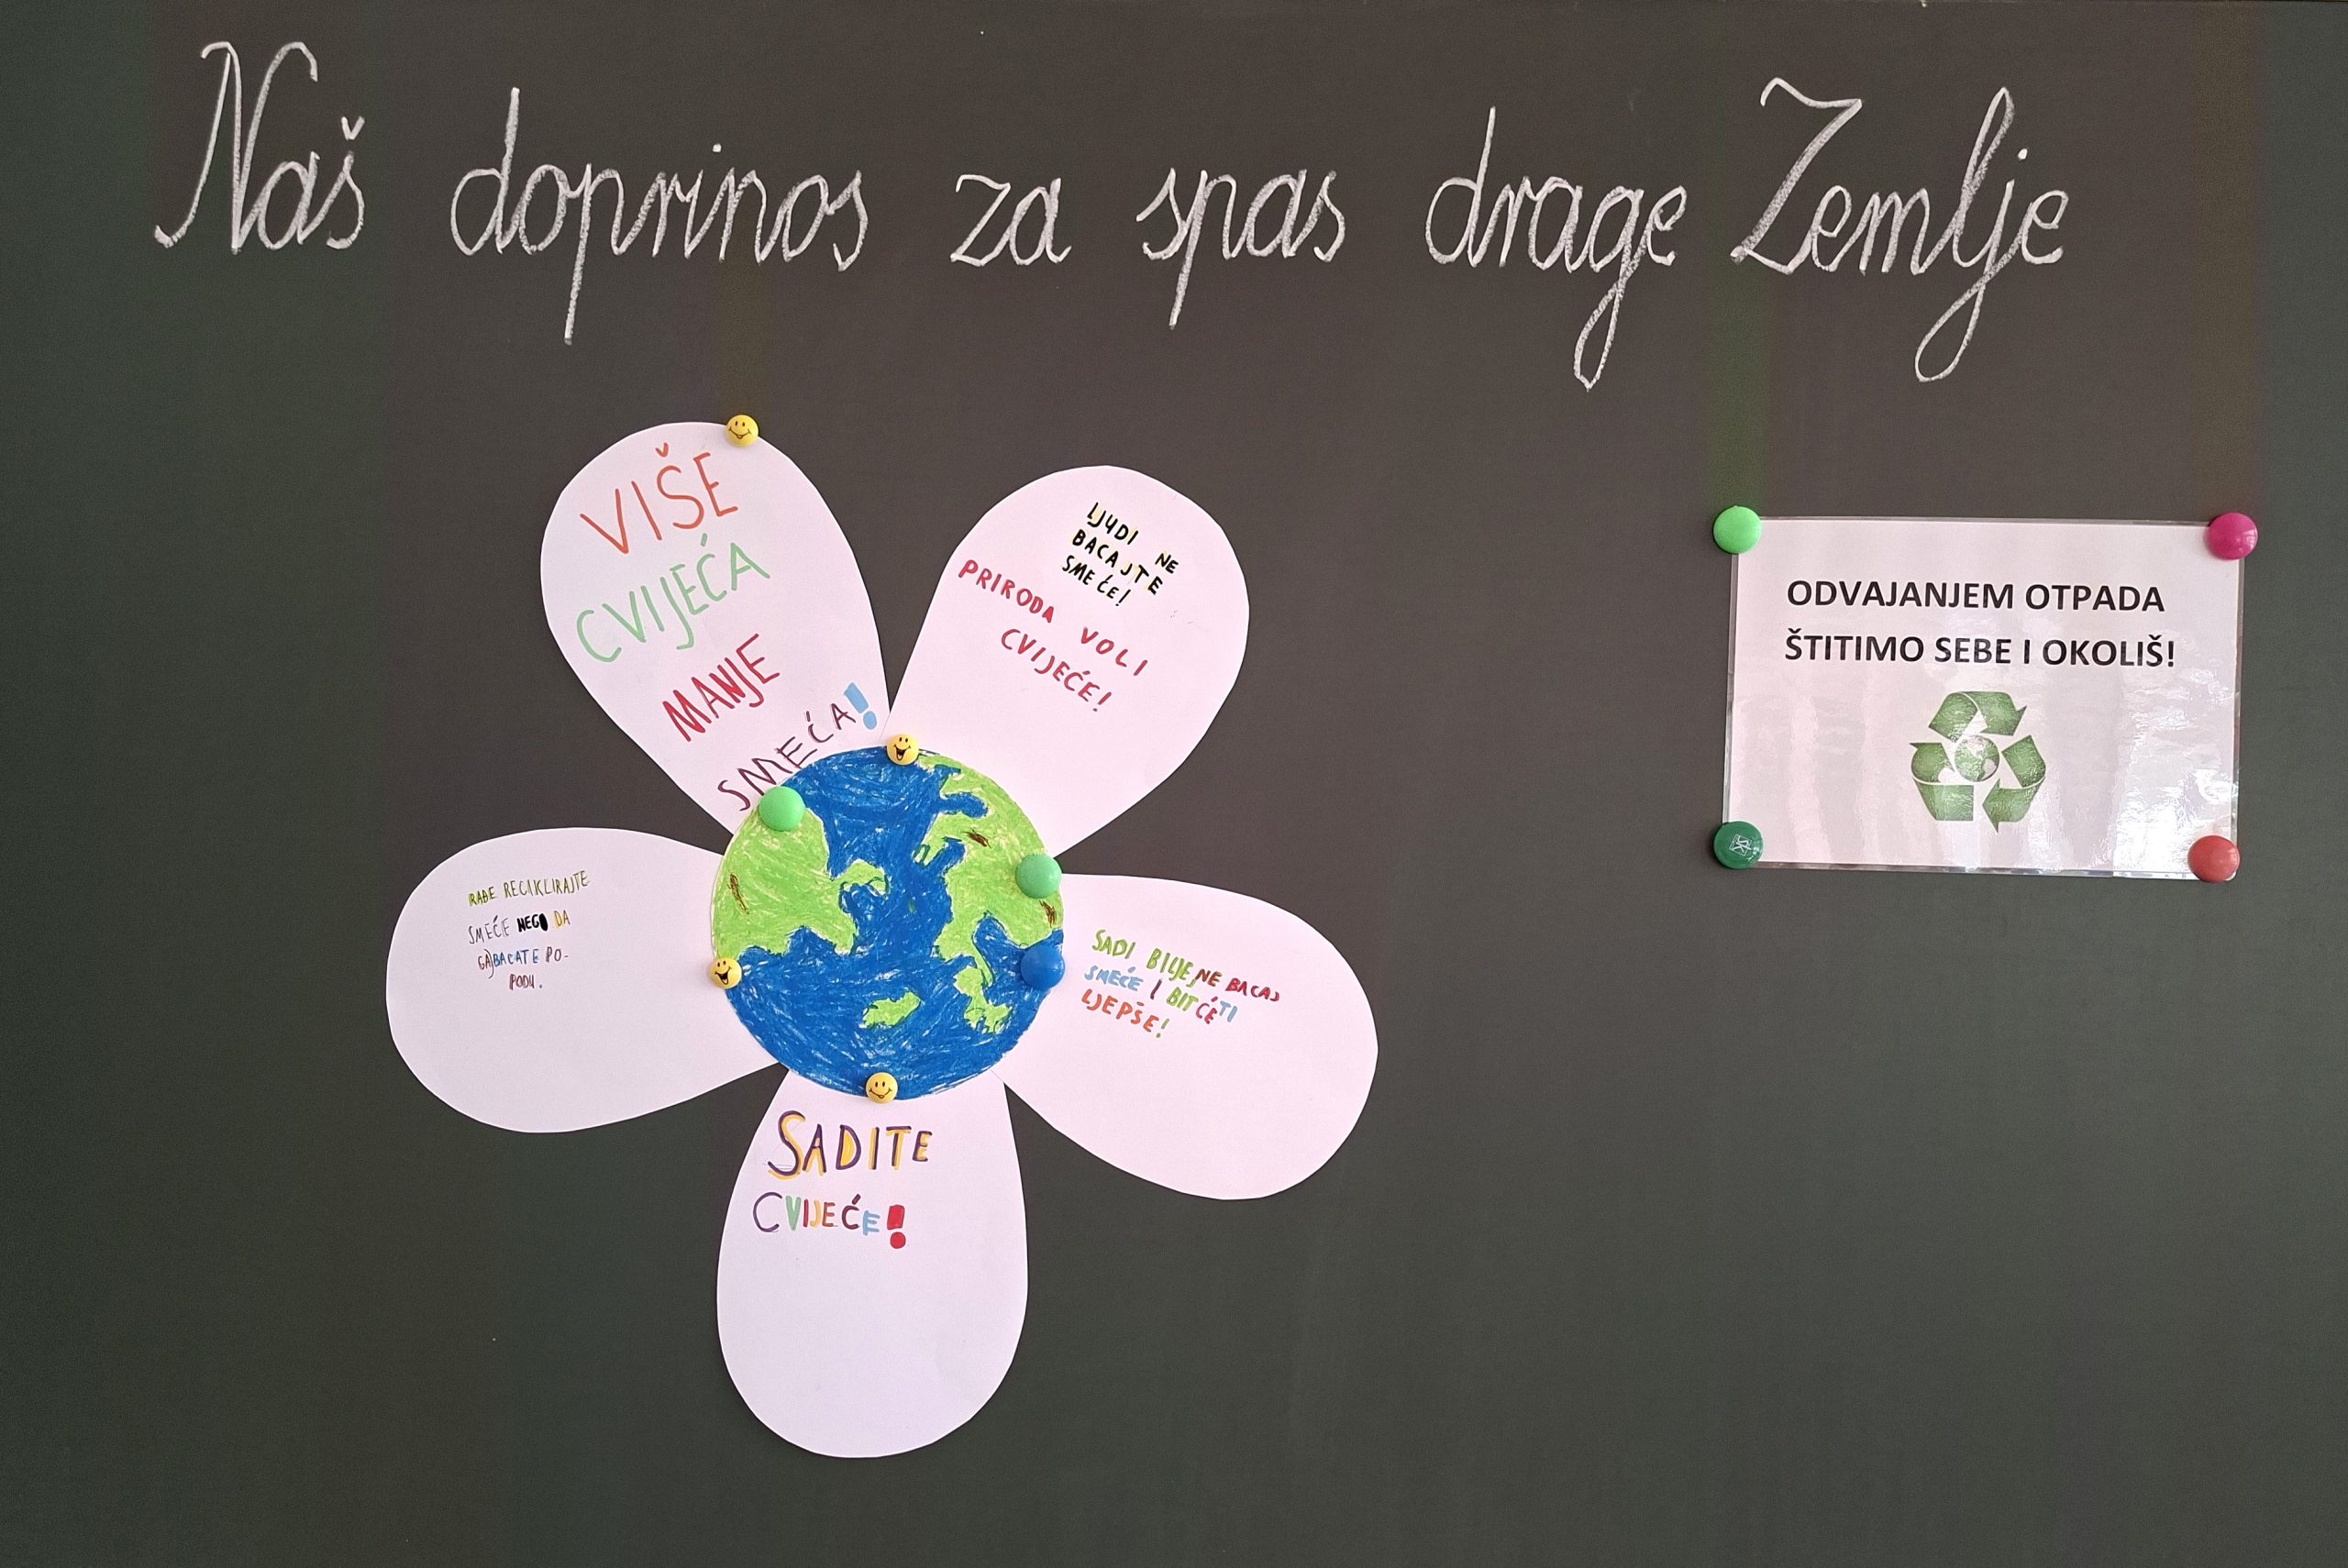 Naš doprinos za spas drage Zemlje
VIŠE
CVIJEĆA
MANJE
SMEĆA!
LJUDI NE
BACAJTE
SMEĆE!
PRIRODA VOLI
CVIJEĆE!
ODVAJANJEM OTPADA
ŠTITIMO SEBE I OKOLIŠ!
RAĐE RECIKLIRAJTE
SMEĆE NEGO DA
GA BACATE PO-
PODU.
SADI BILJE NE BACAJ
SMEĆE I BIT ĆE TI
LJEPŠE!
SADITE
CVIJEĆE!